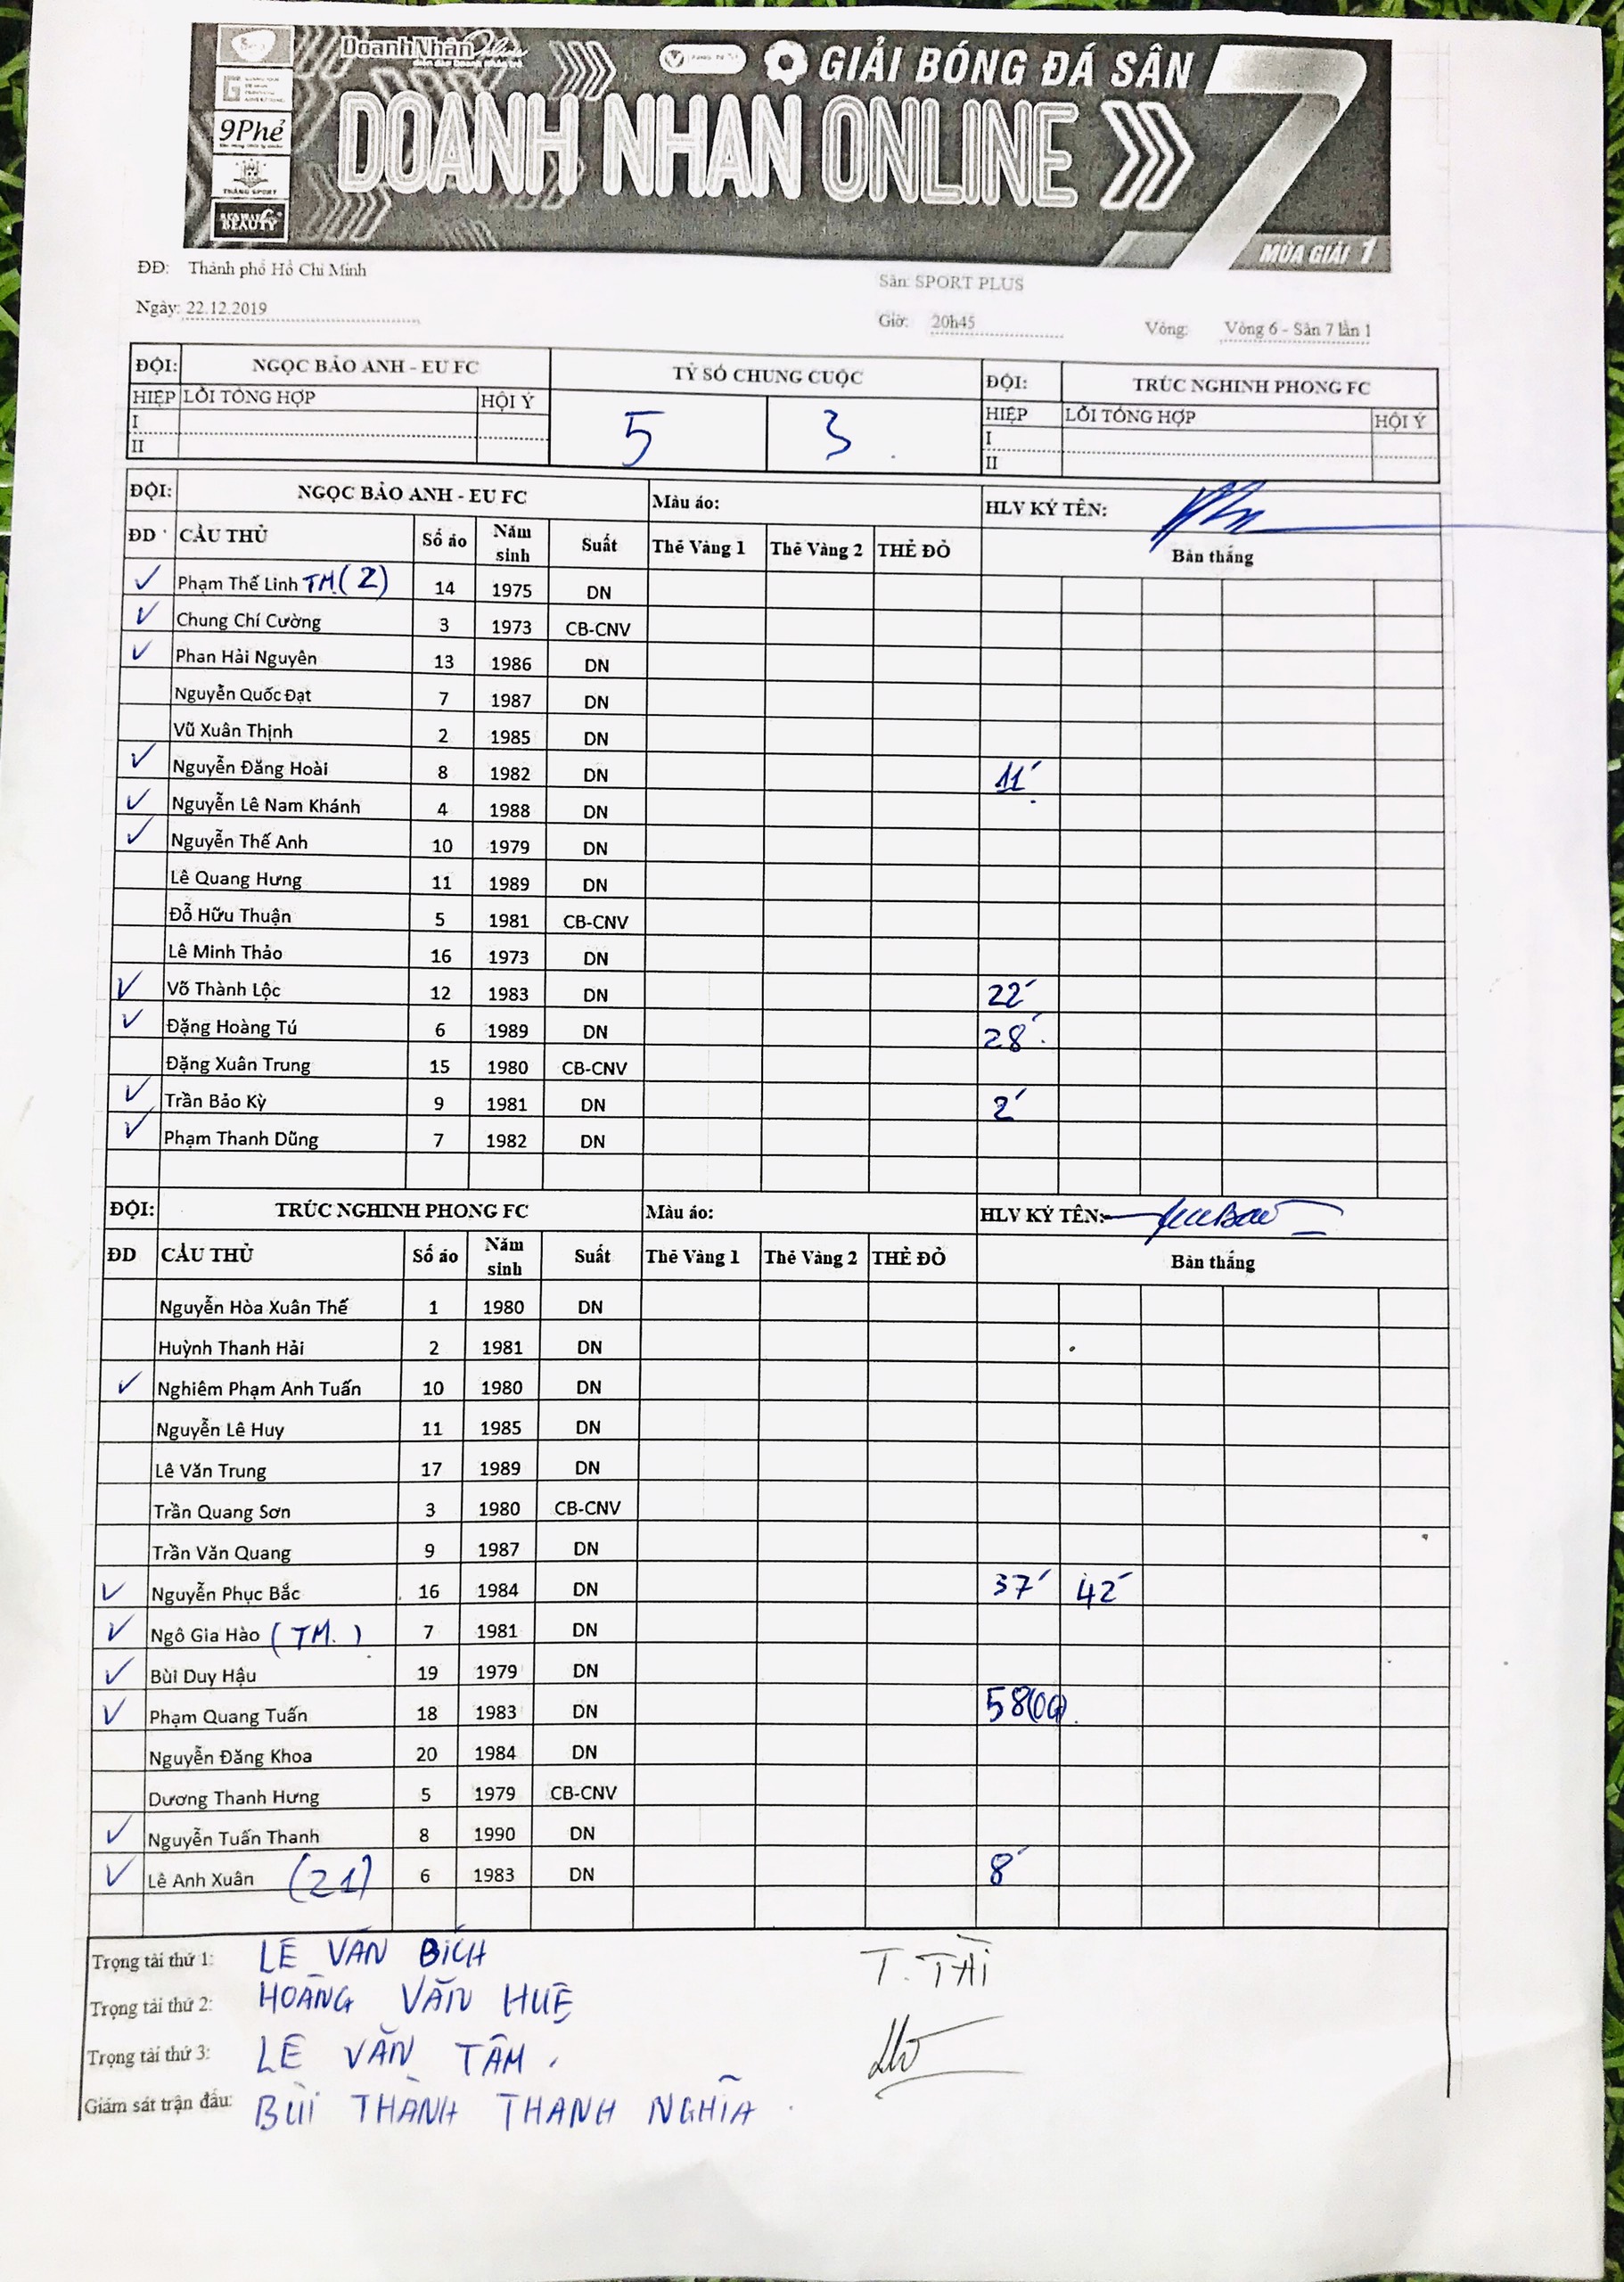 DoanhNhân Online
GIẢI BÓNG ĐÁ SÂN 7
DOANH NHAN ONLINE
9Phẻ
THẮNG SPORT
BEAUTY
MÙA GIẢI 1
ĐĐ: Thành phố Hồ Chí Minh
Sân: SPORT PLUS
Ngày: 22.12.2019
Giờ: 20h45
Vòng: Vòng 6 - Sân 7 lần 1
ĐỘI: NGỌC BẢO ANH - EU FC TỶ SỐ CHUNG CUỘC ĐỘI: TRÚC NGHINH PHONG FC
HIỆP LỖI TỔNG HỢP HỘI Ý 5 3 HIỆP LỖI TỔNG HỢP HỘI Ý
I I
II II
ĐỘI: NGỌC BẢO ANH - EU FC Màu áo: HLV KÝ TÊN:
ĐD CẦU THỦ Số áo Năm sinh Suất Thẻ Vàng 1 Thẻ Vàng 2 THẺ ĐỎ Bàn thắng
✓ Phạm Thế Linh TM (2) 14 1975 DN
✓ Chung Chí Cường 3 1973 CB-CNV
✓ Phan Hải Nguyên 13 1986 DN
Nguyễn Quốc Đạt 7 1987 DN
Vũ Xuân Thịnh 2 1985 DN
✓ Nguyễn Đăng Hoài 8 1982 DN 11'
✓ Nguyễn Lê Nam Khánh 4 1988 DN
✓ Nguyễn Thế Anh 10 1979 DN
Lê Quang Hưng 11 1989 DN
Đỗ Hữu Thuận 5 1981 CB-CNV
Lê Minh Thảo 16 1973 DN
✓ Võ Thành Lộc 12 1983 DN 22'
✓ Đặng Hoàng Tú 6 1989 DN 28'
Đặng Xuân Trung 15 1980 CB-CNV
✓ Trần Bảo Kỳ 9 1981 DN 2'
✓ Phạm Thanh Dũng 7 1982 DN
ĐỘI: TRÚC NGHINH PHONG FC Màu áo: HLV KÝ TÊN:
ĐD CẦU THỦ Số áo Năm sinh Suất Thẻ Vàng 1 Thẻ Vàng 2 THẺ ĐỎ Bàn thắng
Nguyễn Hòa Xuân Thế 1 1980 DN
Huỳnh Thanh Hải 2 1981 DN
✓ Nghiêm Phạm Anh Tuấn 10 1980 DN
Nguyễn Lê Huy 11 1985 DN
Lê Văn Trung 17 1989 DN
Trần Quang Sơn 3 1980 CB-CNV
Trần Văn Quang 9 1987 DN
✓ Nguyễn Phục Bắc 16 1984 DN 37' 42'
✓ Ngô Gia Hào (TM.) 7 1981 DN
✓ Bùi Duy Hậu 19 1979 DN
✓ Phạm Quang Tuấn 18 1983 DN 58(OG).
Nguyễn Đăng Khoa 20 1984 DN
Dương Thanh Hưng 5 1979 CB-CNV
✓ Nguyễn Tuấn Thanh 8 1990 DN
✓ Lê Anh Xuân (21) 6 1983 DN 8'
Trọng tài thứ 1: LÊ VĂN BÍCH T. TÀI
Trọng tài thứ 2: HOÀNG VĂN HUỆ
Trọng tài thứ 3: LÊ VĂN TÂM.
Giám sát trận đấu: BÙI THÀNH THANH NGHĨA